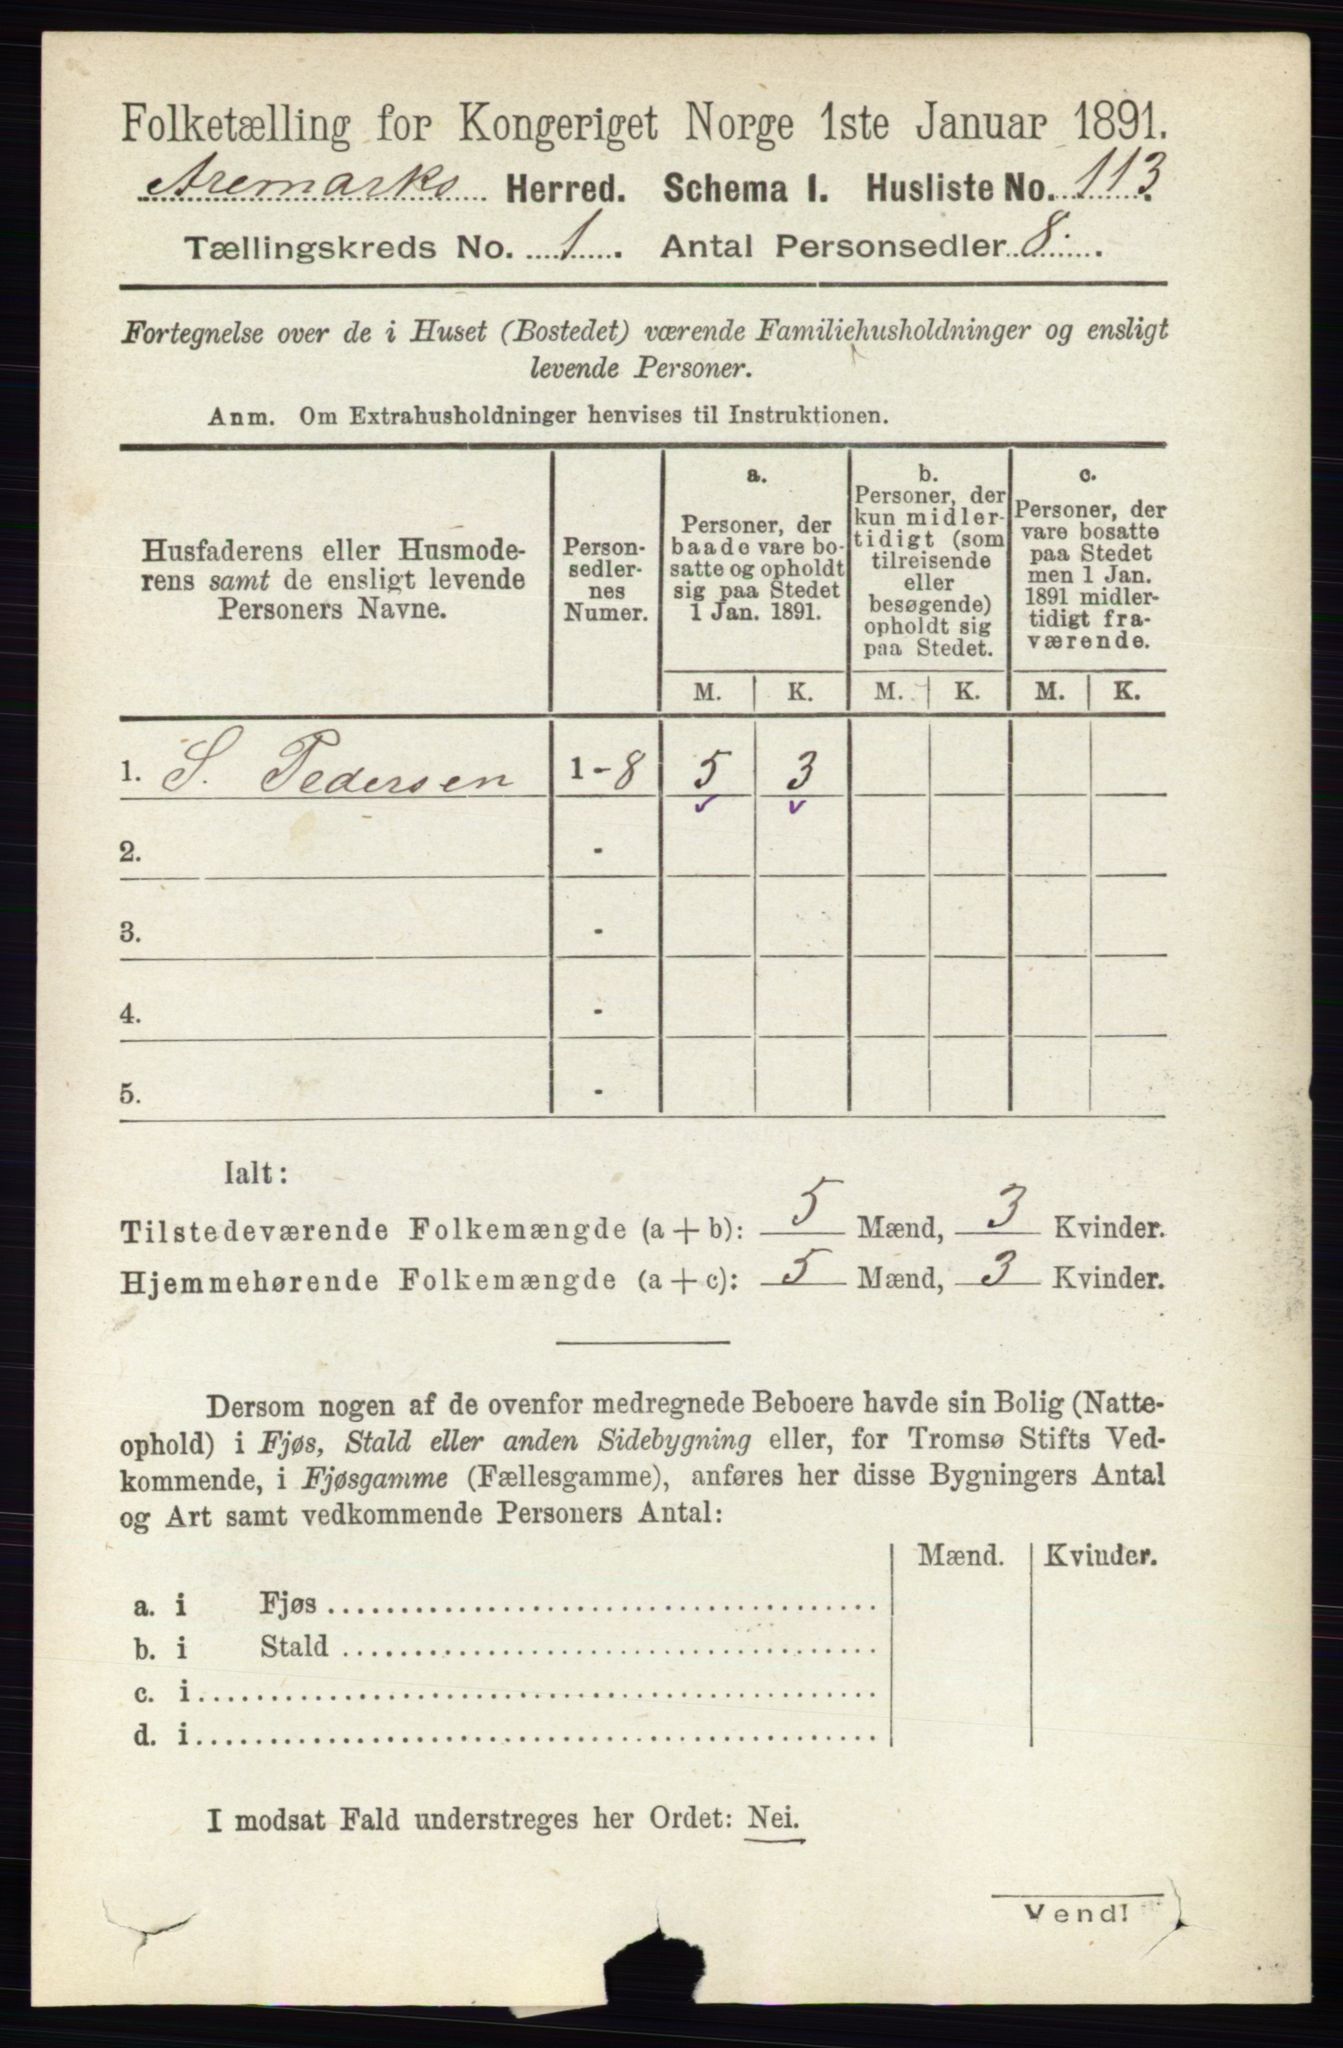 Folketælling for Kongeriget Norge 1ste Januar 1891.
Aremarks Herred. Schema I. Husliste No. 113
Tællingskreds No. 1. Antal Personsedler 8.
Fortegnelse over de i Huset (Bostedet) værende Familiehusholdninger og ensligt
levende Personer.
Anm. Om Extrahusholdninger henvises til Instruktionen.
Husfaderens eller Husmode-
rens samt de ensligt levende
Personers Navne.
Person-
sedler-
nes
Numer.
a.
Personer, der
baade vare bo-
satte og opholdt
sig paa Stedet
1 Jan. 1891.
b.
Personer, der
kun midler-
tidigt (som
tilreisende
eller
besøgende)
opholdt sig
paa Stedet.
c.
Personer, der
vare bosatte
paa Stedet
men 1 Jan.
1891 midler-
tidigt fra-
værende.
M. K. M. K. M. K.
1. S. Pedersen 1-8 5 3
2. -
3. -
4. -
5. -
Ialt:
Tilstedeværende Folkemængde (a + b): 5 Mænd, 3 Kvinder.
Hjemmehørende Folkemængde (a + c): 5 Mænd, 3 Kvinder.
Dersom nogen af de ovenfor medregnede Beboere havde sin Bolig (Natte-
ophold) i Fjøs, Stald eller anden Sidebygning eller, for Tromsø Stifts Ved-
kommende, i Fjøsgamme (Fællesgamme), anføres her disse Bygningers Antal
og Art samt vedkommende Personers Antal:
Mænd. Kvinder.
a. i Fjøs
b. i Stald
c. i
d. i
I modsat Fald understreges her Ordet: Nei.
Vend!